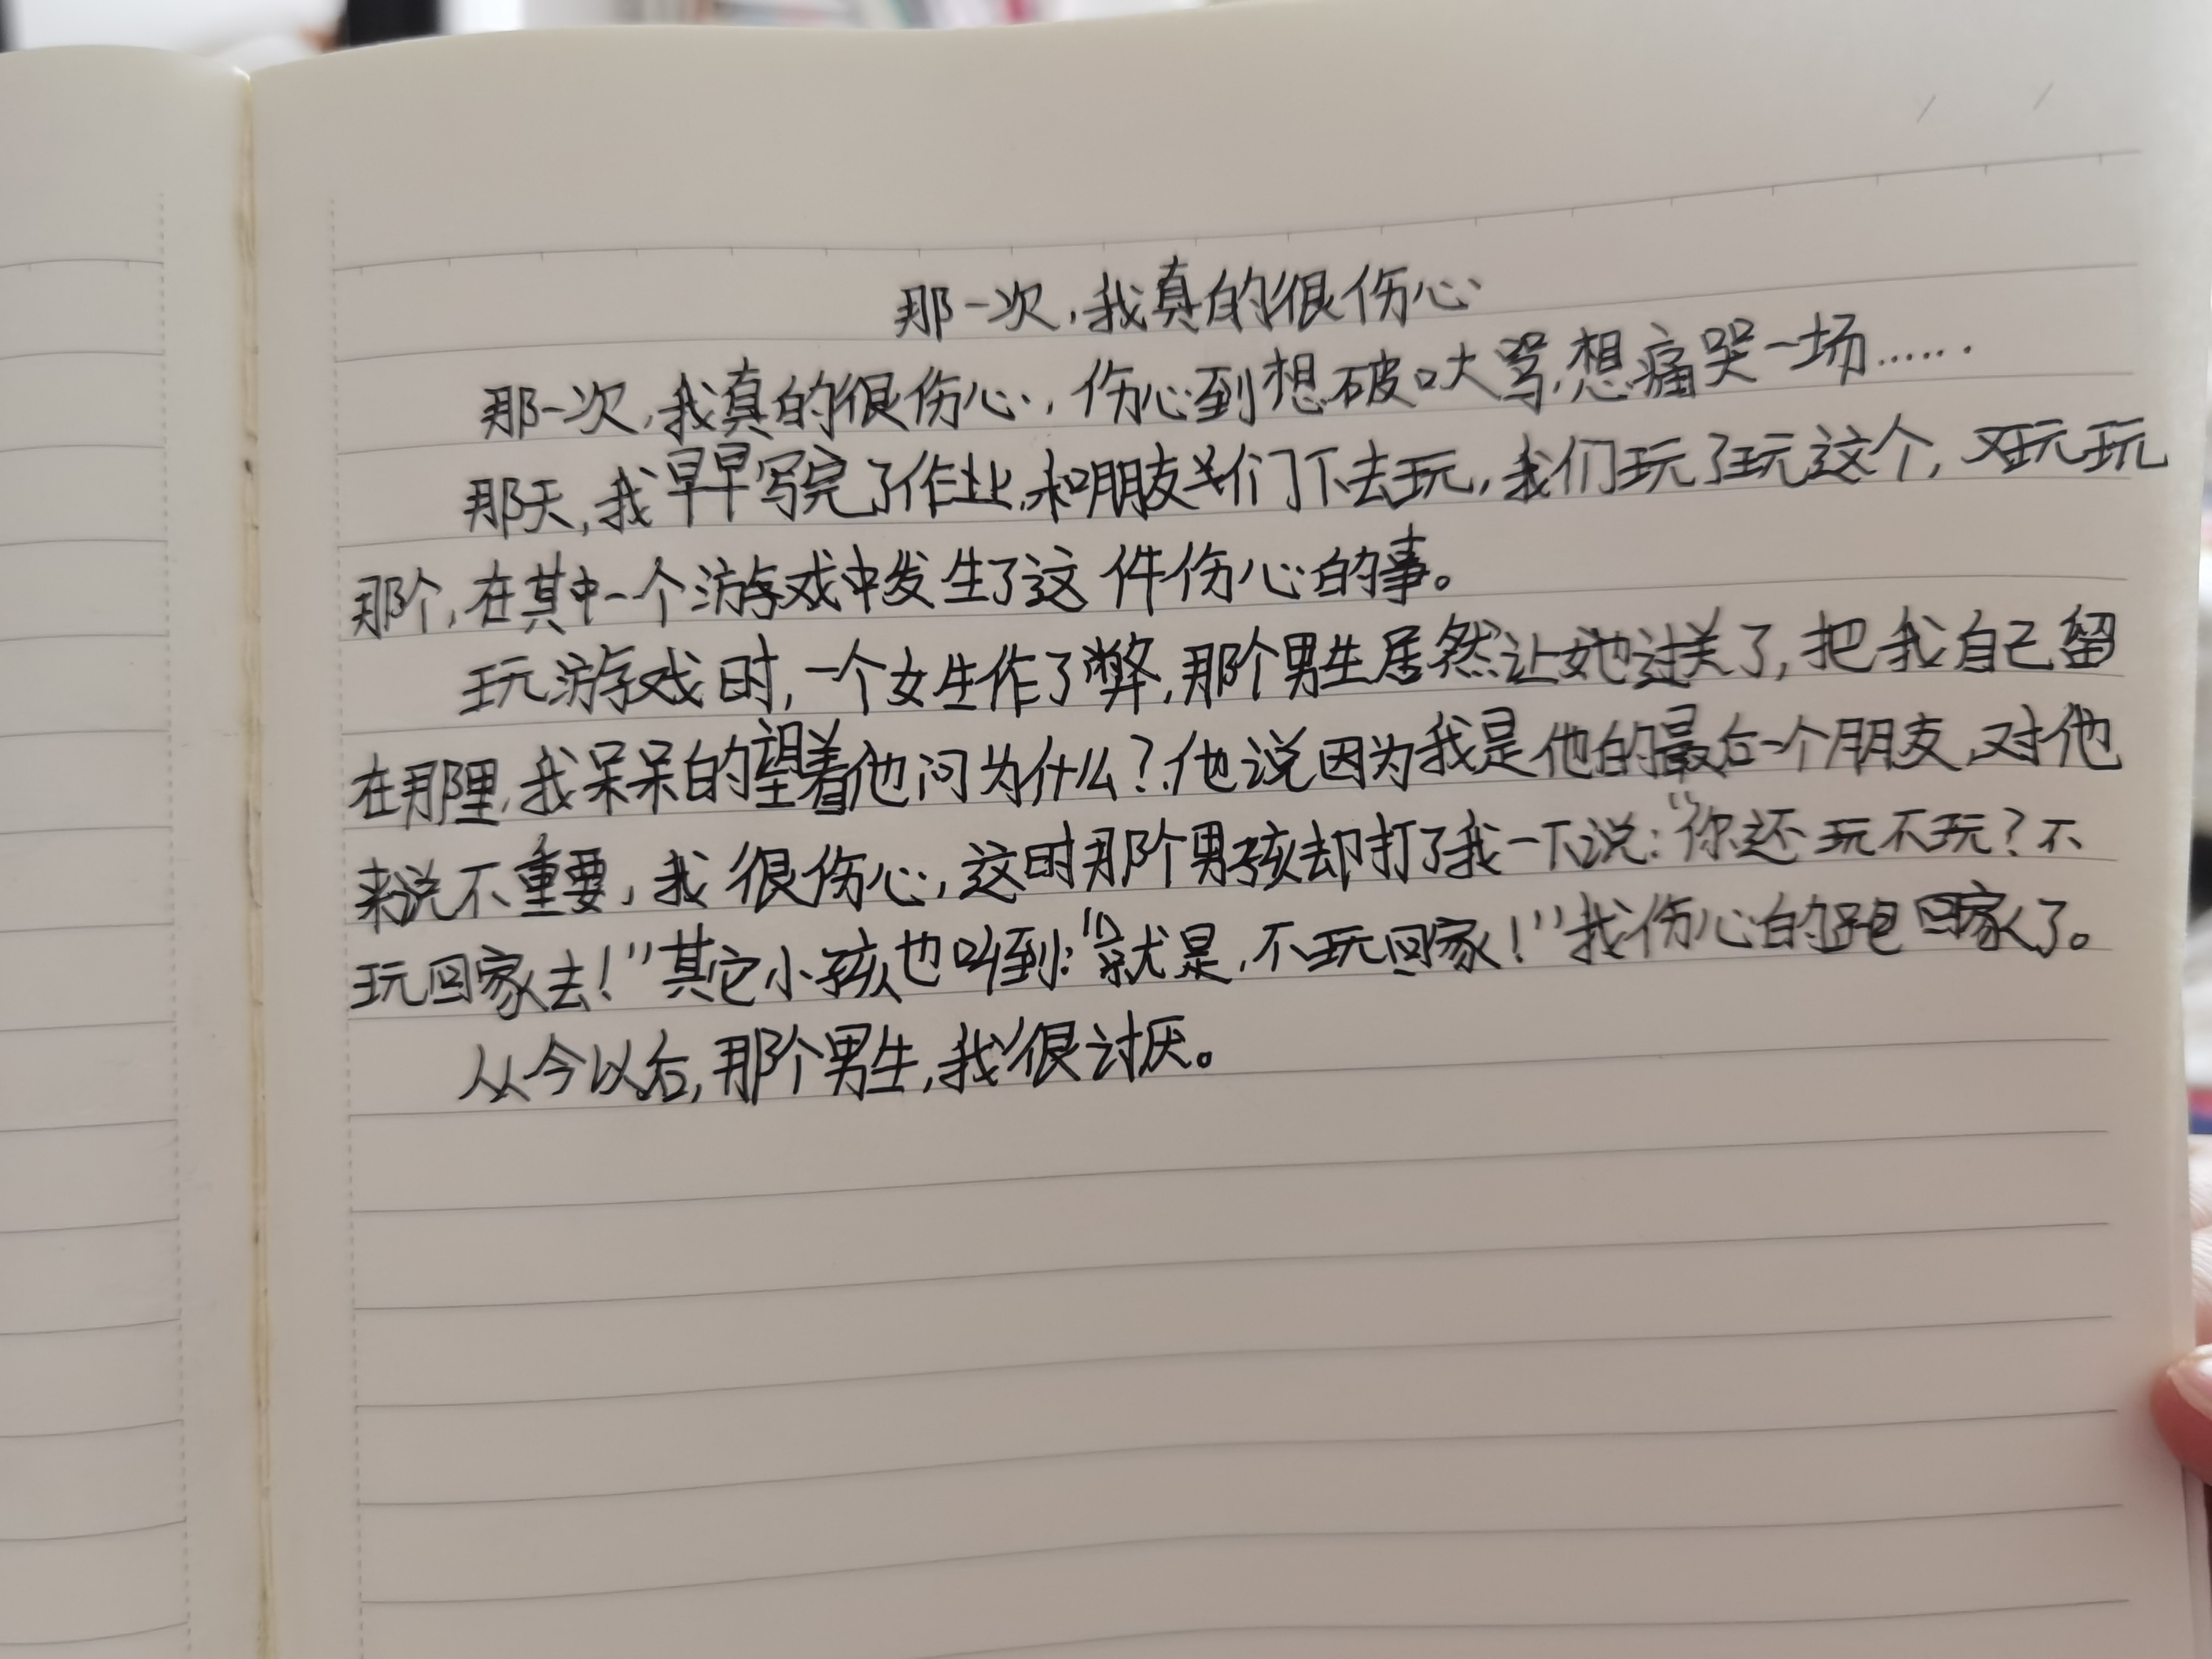 那一次,我真的很伤心
那一次,我真的很伤心,伤心到想破口大骂,想痛哭一场……
那天,我早早写完了作业,和朋友们下去玩,我们玩了玩这个,又玩玩
那个,在其中一个游戏中发生了这件伤心的事。
玩游戏时,一个女生作了弊,那个男生居然让她过关了,把我自己留
在那里,我呆呆的望着他问为什么?他说因为我是他的最后一个朋友,对他
来说不重要,我很伤心,这时那个男孩却打了我一下说:“你还玩不玩?不
玩回家去!”其它小孩也叫到:“就是,不玩回家!”我伤心的跑回家了。
从今以后,那个男生,我很讨厌。